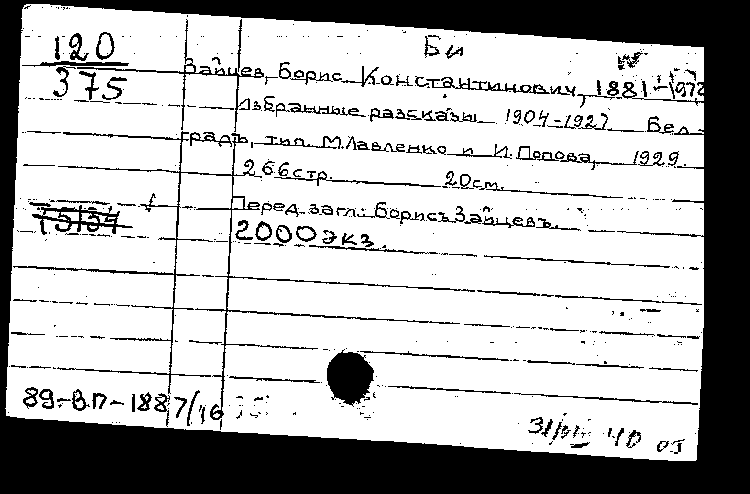 Би
120
375
Зайцев, Борис Константинович, 1881-1972
Избранные разсказы 1904-1927 Бел-
градъ, тип. М.Лавленко и И.Попова, 1929.
266стр. 20см.
Перед загл.: Борисъ Зайцевъ.
2000экз.
89-ВП-1887/16
40